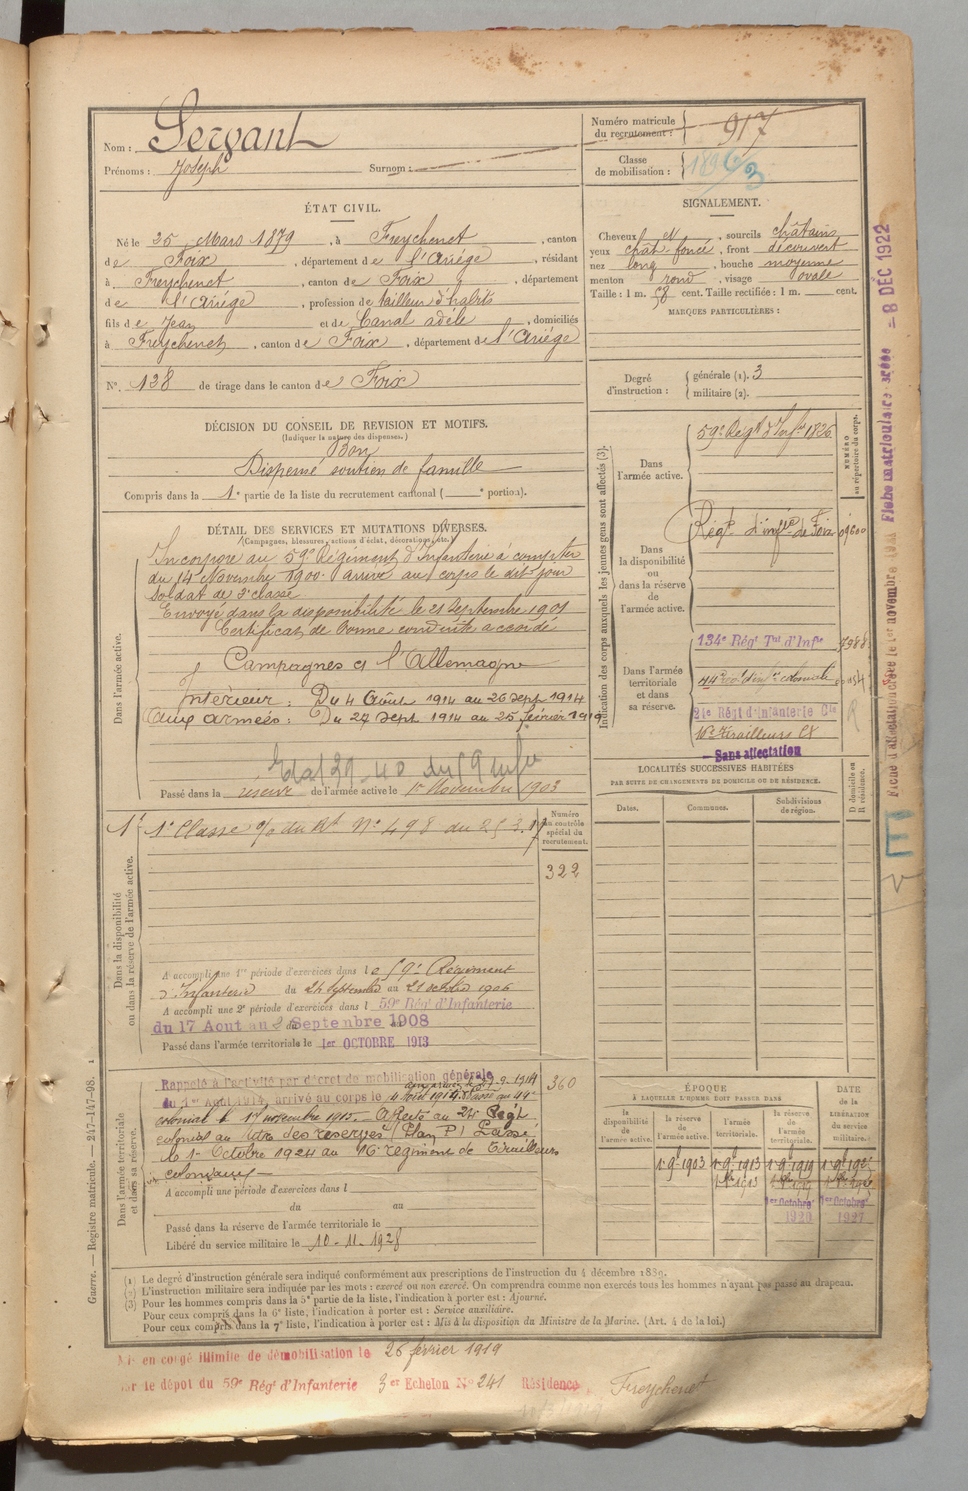 Nom : Servant
Prénoms : Joseph Surnom :
Numéro matricule du recrutement : 917
Classe de mobilisation :
ÉTAT CIVIL.
Né le 25 Mars 1879, à Freychenet, canton
de Foix, département de l'Ariége, résidant
à Freychenet, canton de Foix, département
de l'Ariége, profession de tailleur d'habits
fils de Jean et de Canal adèle, domiciliés
à Freychenet, canton de Foix, département de l'Ariége
N° 138 de tirage dans le canton de Foix
SIGNALEMENT.
Cheveux et, sourcils châtains
yeux chât. foncé, front découvert
nez long, bouche moyenne
menton rond, visage ovale
Taille : 1 m. 58 cent. Taille rectifiée : 1 m. cent.
MARQUES PARTICULIÈRES :
Degré d'instruction : générale (1). 3
militaire (2).
DÉCISION DU CONSEIL DE REVISION ET MOTIFS.
(Indiquer la nature des dispenses.)
Bon
Dispensé soutien de famille
Compris dans la 1e partie de la liste du recrutement cantonal ( e portion).
DÉTAIL DES SERVICES ET MUTATIONS DIVERSES.
(Campagnes, blessures, actions d'éclat, décorations, etc.)
Dans l'armée active.
Incorporé au 59e Régiment d'Infanterie à compter
du 14 Novembre 1900. arrivé au corps le dit jour
Soldat de 2e classe
Envoyé dans la disponibilité le 21 Septembre 1901
Certificat de bonne conduite accordé
Campagnes c/ l'Allemagne
Intérieur : Du 4 Août 1914 au 26 Sept 1914
Aux armées : Du 27 Sept 1914 au 25 février 1919
Passé dans la réserve de l'armée active le 1er Novembre 1903
Indication des corps auxquels les jeunes gens sont affectés (3).
NUMÉRO au répertoire du corps.
Dans l'armée active.
59e Régt d'Infie 1826
Dans la disponibilité ou dans la réserve de l'armée active.
Régt d'infie de Foix 09600
Dans l'armée territoriale et dans sa réserve.
134e Régt Tal d'Infie
44e d'infie coloniale
24e Régt d'Infanterie Cle
16e Tirailleurs
Sans affectation
LOCALITÉS SUCCESSIVES HABITÉES
PAR SUITE DE CHANGEMENTS DE DOMICILE OU DE RÉSIDENCE.
Dates. Communes. Subdivisions de région. D domicile ou R résidence.
Dans la disponibilité ou dans la réserve de l'armée active.
Numéro au contrôle spécial du recrutement.
1e Classe
322
A accompli une 1re période d'exercices dans le 59e Régiment
d'Infanterie du 24 Septembre au 21 octobre 1906
A accompli une 2e période d'exercices dans l 59e Régt d'Infanterie
du 17 Aout au 2 Septembre 1908
Passé dans l'armée territoriale le 1er OCTOBRE 1913
Dans l'armée territoriale et dans sa réserve.
Rappelé à l'activité par décret de mobilisation générale
du 1er Aout 1914, arrivé au corps le 4 Août 1914. Passé au 44e
colonial le 1er novembre 1915. Affecté au 24e Régt
colonial au titre des réserves (Plan P) Passé
le 1er Octobre 1924 au 16e régiment de Tirailleurs
coloniaux
360
A accompli une période d'exercices dans l
du au
Passé dans la réserve de l'armée territoriale le
Libéré du service militaire le 10-11-1928
ÉPOQUE
À LAQUELLE L'HOMME DOIT PASSER DANS
la disponibilité de l'armée active. la réserve de l'armée active. l'armée territoriale. la réserve de l'armée territoriale. DATE de la LIBÉRATION du service militaire.
1er 9bre 1903 1er 9bre 1913 1er 9bre 1919
1er Octobre 1920 1er Octobre 1927
(1) Le degré d'instruction générale sera indiqué conformément aux prescriptions de l'instruction du 4 décembre 1889.
(2) L'instruction militaire sera indiquée par les mots : exercé ou non exercé. On comprendra comme non exercés tous les hommes n'ayant pas passé au drapeau.
(3) Pour les hommes compris dans la 5e partie de la liste, l'indication à porter est : Ajourné.
Pour ceux compris dans la 6e liste, l'indication à porter est : Service auxiliaire.
Pour ceux compris dans la 7e liste, l'indication à porter est : Mis à la disposition du Ministre de la Marine. (Art. 4 de la loi.)
Mis en congé illimité de démobilisation le 26 février 1919
par le dépôt du 59e Régt d'Infanterie 3er Echelon No 241 Résidence Freychenet
Guerre. — Registre matricule. — 247-147-98.
Fiche matriculaire créée - 8 DÉC 1922